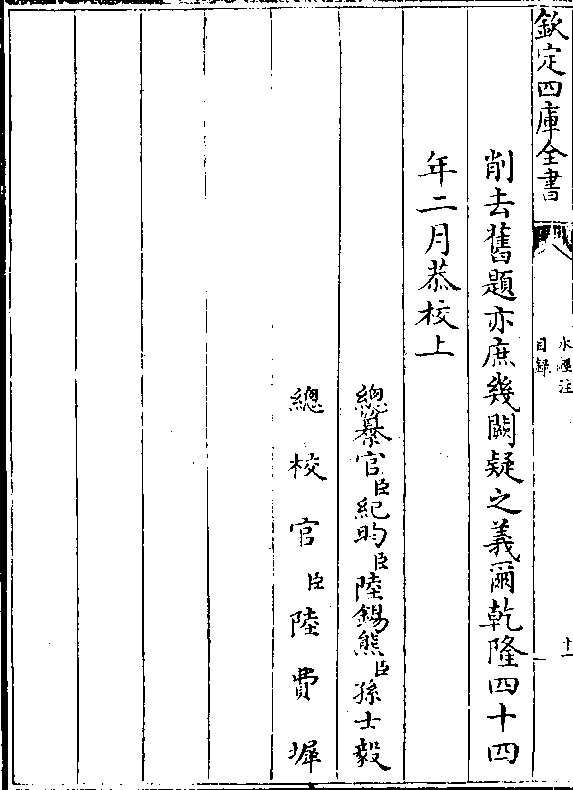 欽定四庫全書
水經注
目錄
十一
削去舊題亦庶幾闕疑之義爾乾隆四十四
年二月恭校上
總纂官臣紀昀臣陸錫熊臣孫士毅
總校官臣陸費墀